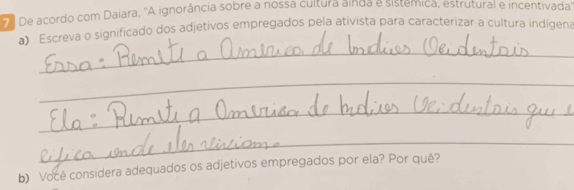 7 De acordo com Daiara, "A ignorância sobre a nossa cultura ainda é sistêmica, estrutural e incentivada"
a) Escreva o significado dos adjetivos empregados pela ativista para caracterizar a cultura indígena
Essa: Remete a America de Indios Ocidentais
Ela: Remete a America de Indios Ocidentais que e
onde eles viviam.
b) Você considera adequados os adjetivos empregados por ela? Por quê?